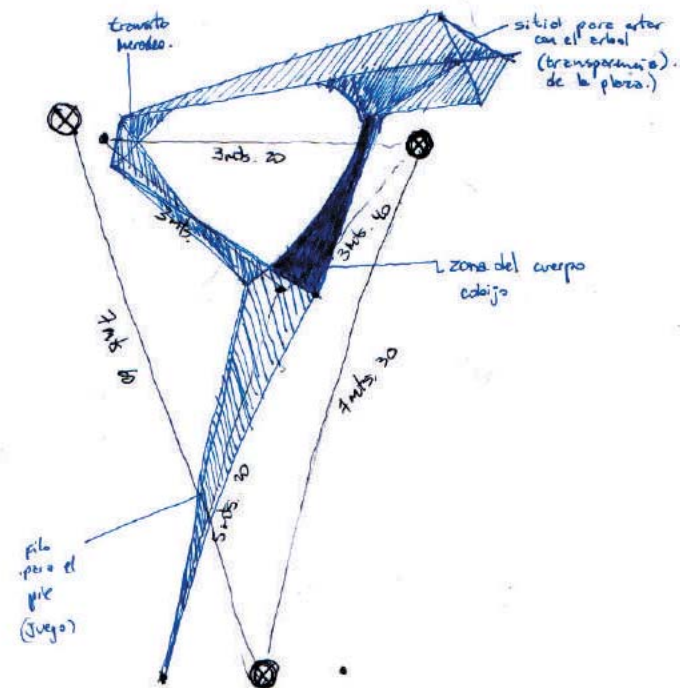 transito
merodeo.
sitial para estar
con el arbol
(transparencia).
de la plaza.)
3 mts. 20
3 mts.
3 mts. 40
zona del cuerpo
cobijo
7 mts
7 mts. 30
5 mts. 20
filo
para el
pie
(juego)